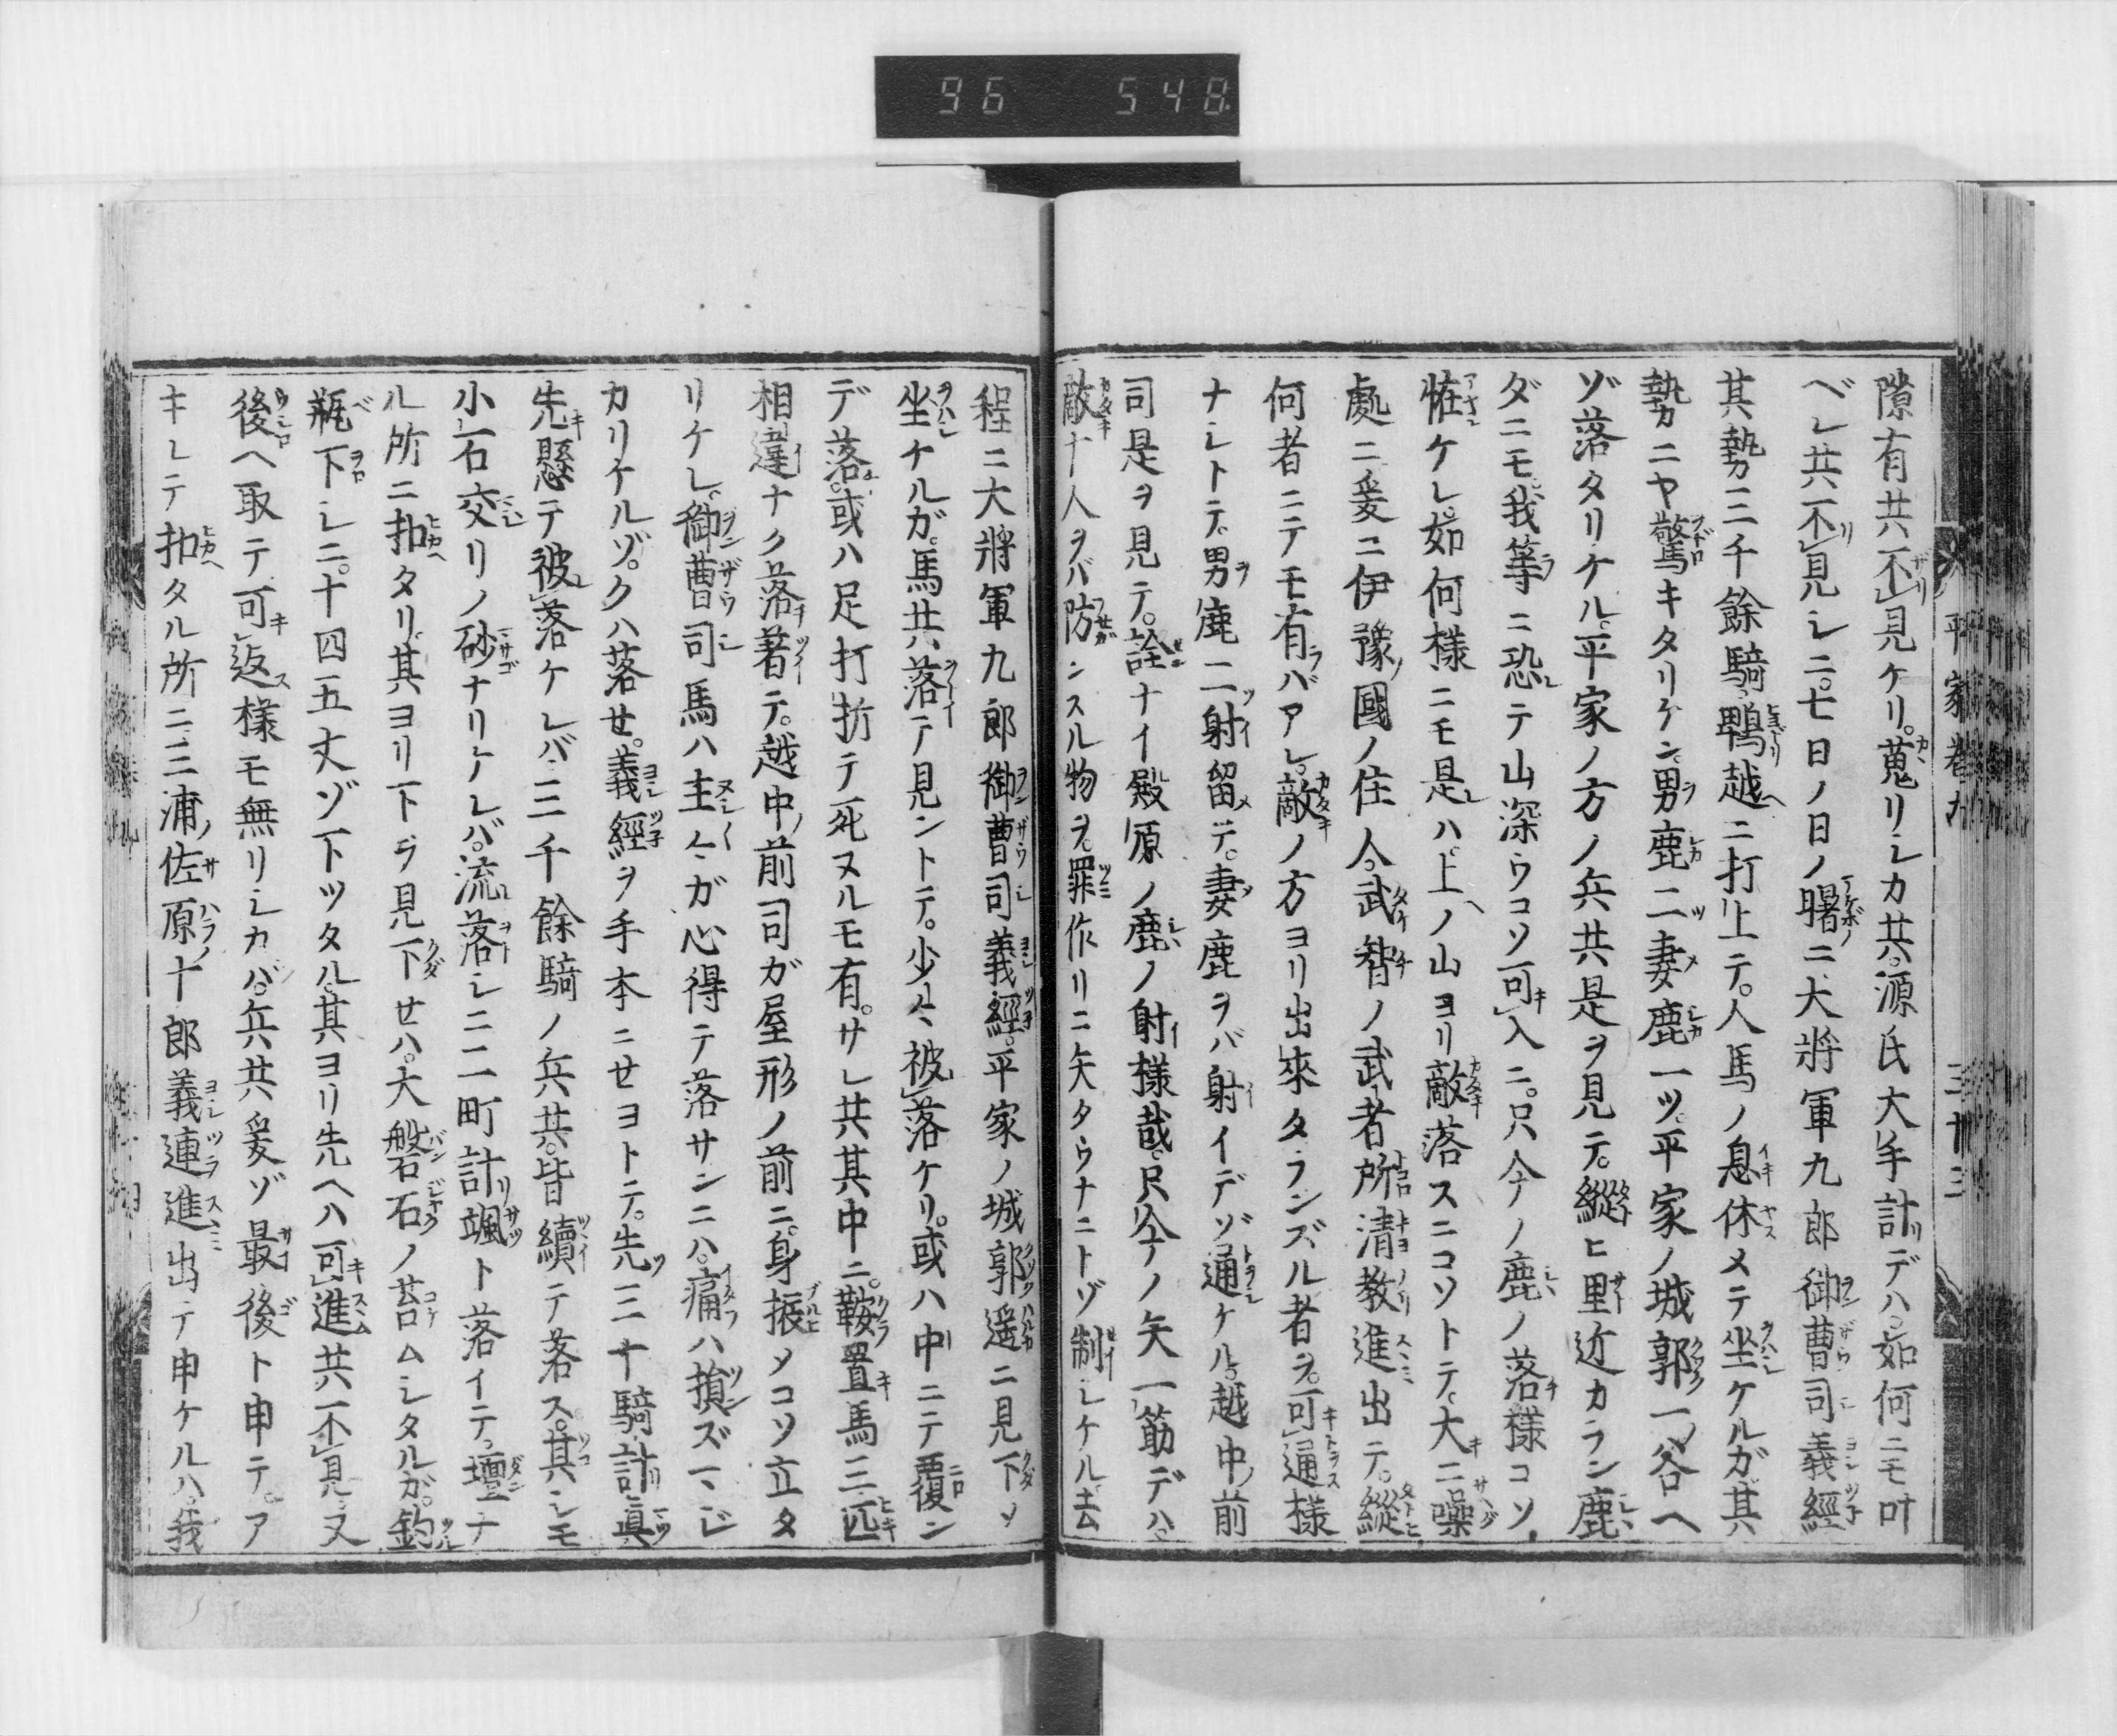 96 548
平家卷九 三十三
隙有共不見ケリ。蒐リシカ共。源氏大手計デハ。如何ニモ叶
ベシ共不見シニ。七日ノ日ノ曙ニ大將軍九郎御曹司義經
其勢三千餘騎鵯越ニ打上テ。人馬ノ息休メテ坐ケルガ其
勢ニヤ驚キタリケン。男鹿二妻鹿一ツ。平家ノ城郭一谷ヘ
ゾ落タリケル。平家ノ方ノ兵共是ヲ見テ。縱ヒ里近カラン鹿
ダニモ我等ニ恐テ山深ウコソ可入ニ。只今ノ鹿ノ落樣コソ
恠ケレ。如何樣ニモ是ハ。上ノ山ヨリ敵落スニコソトテ。大ニ噪
處ニ爰ニ伊豫國ノ住人。武智ノ武者所清教進出テ。縱
何者ニテモ有バアレ。敵ノ方ヨリ出來タランズル者ヲ。可通樣
ナシトテ。男鹿二射留テ。妻鹿ヲバ射イデゾ通ケル。越中前
司是ヲ見テ。詮ナイ殿原ノ鹿ノ射樣哉。只今ノ矢一筋デハ。
敵十人ヲバ防ンスル物ヲ。罪作リニ矢タウナニトゾ制シケル。去
程ニ大將軍九郎御曹司義經。平家ノ城郭遥ニ見下ソ
坐ケルガ。馬共落テ見ントテ。少々被落ケリ。或ハ中ニテ覆ン
デ落。或ハ足打折テ死ヌルモ有。サレ共其中ニ。鞍置馬三匹
相違ナク落著テ。越中前司ガ屋形ノ前ニ。身振メコソ立タ
リケレ。御曹司馬ハ主々ガ心得テ落サンニハ。痛ハ損ズマジ
カリケルゾ。クハ落せ。義經ヲ手本ニせヨトテ。先三十騎計眞
先懸テ被落ケレバ。三千餘騎ノ兵共。皆續テ落ス。其シモ
小石交リノ砂ナリケレバ。流落シニ二町計颯ト落イテ。壇ナ
ル所ニ扣タリ。其ヨリ下ヲ見下せハ。大磐石ノ苔ムシタルガ。釣
瓶下シニ。十四五丈ゾ下ツタル。其ヨリ先ヘハ可進共不見。又
後ヘ取テ可返樣モ無リシカバ。兵共爰ゾ最後ト申テ。ア
キレテ扣タル所ニ。三浦ノ佐原十郎義連進出テ申ケルハ。我